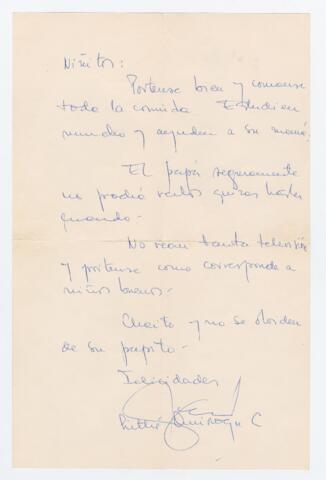 Niñitos:
Portense bien y comanse
toda la comida Estudien
mucho y ayuden a su mamá.
El papá seguramente
no podrá verlos quizas hasta
quando.
No vean tanta televisión
y portense como corresponde a
niños buenos.
Chaito y no se olviden
de su papito.
Felicidades
Quiroga C